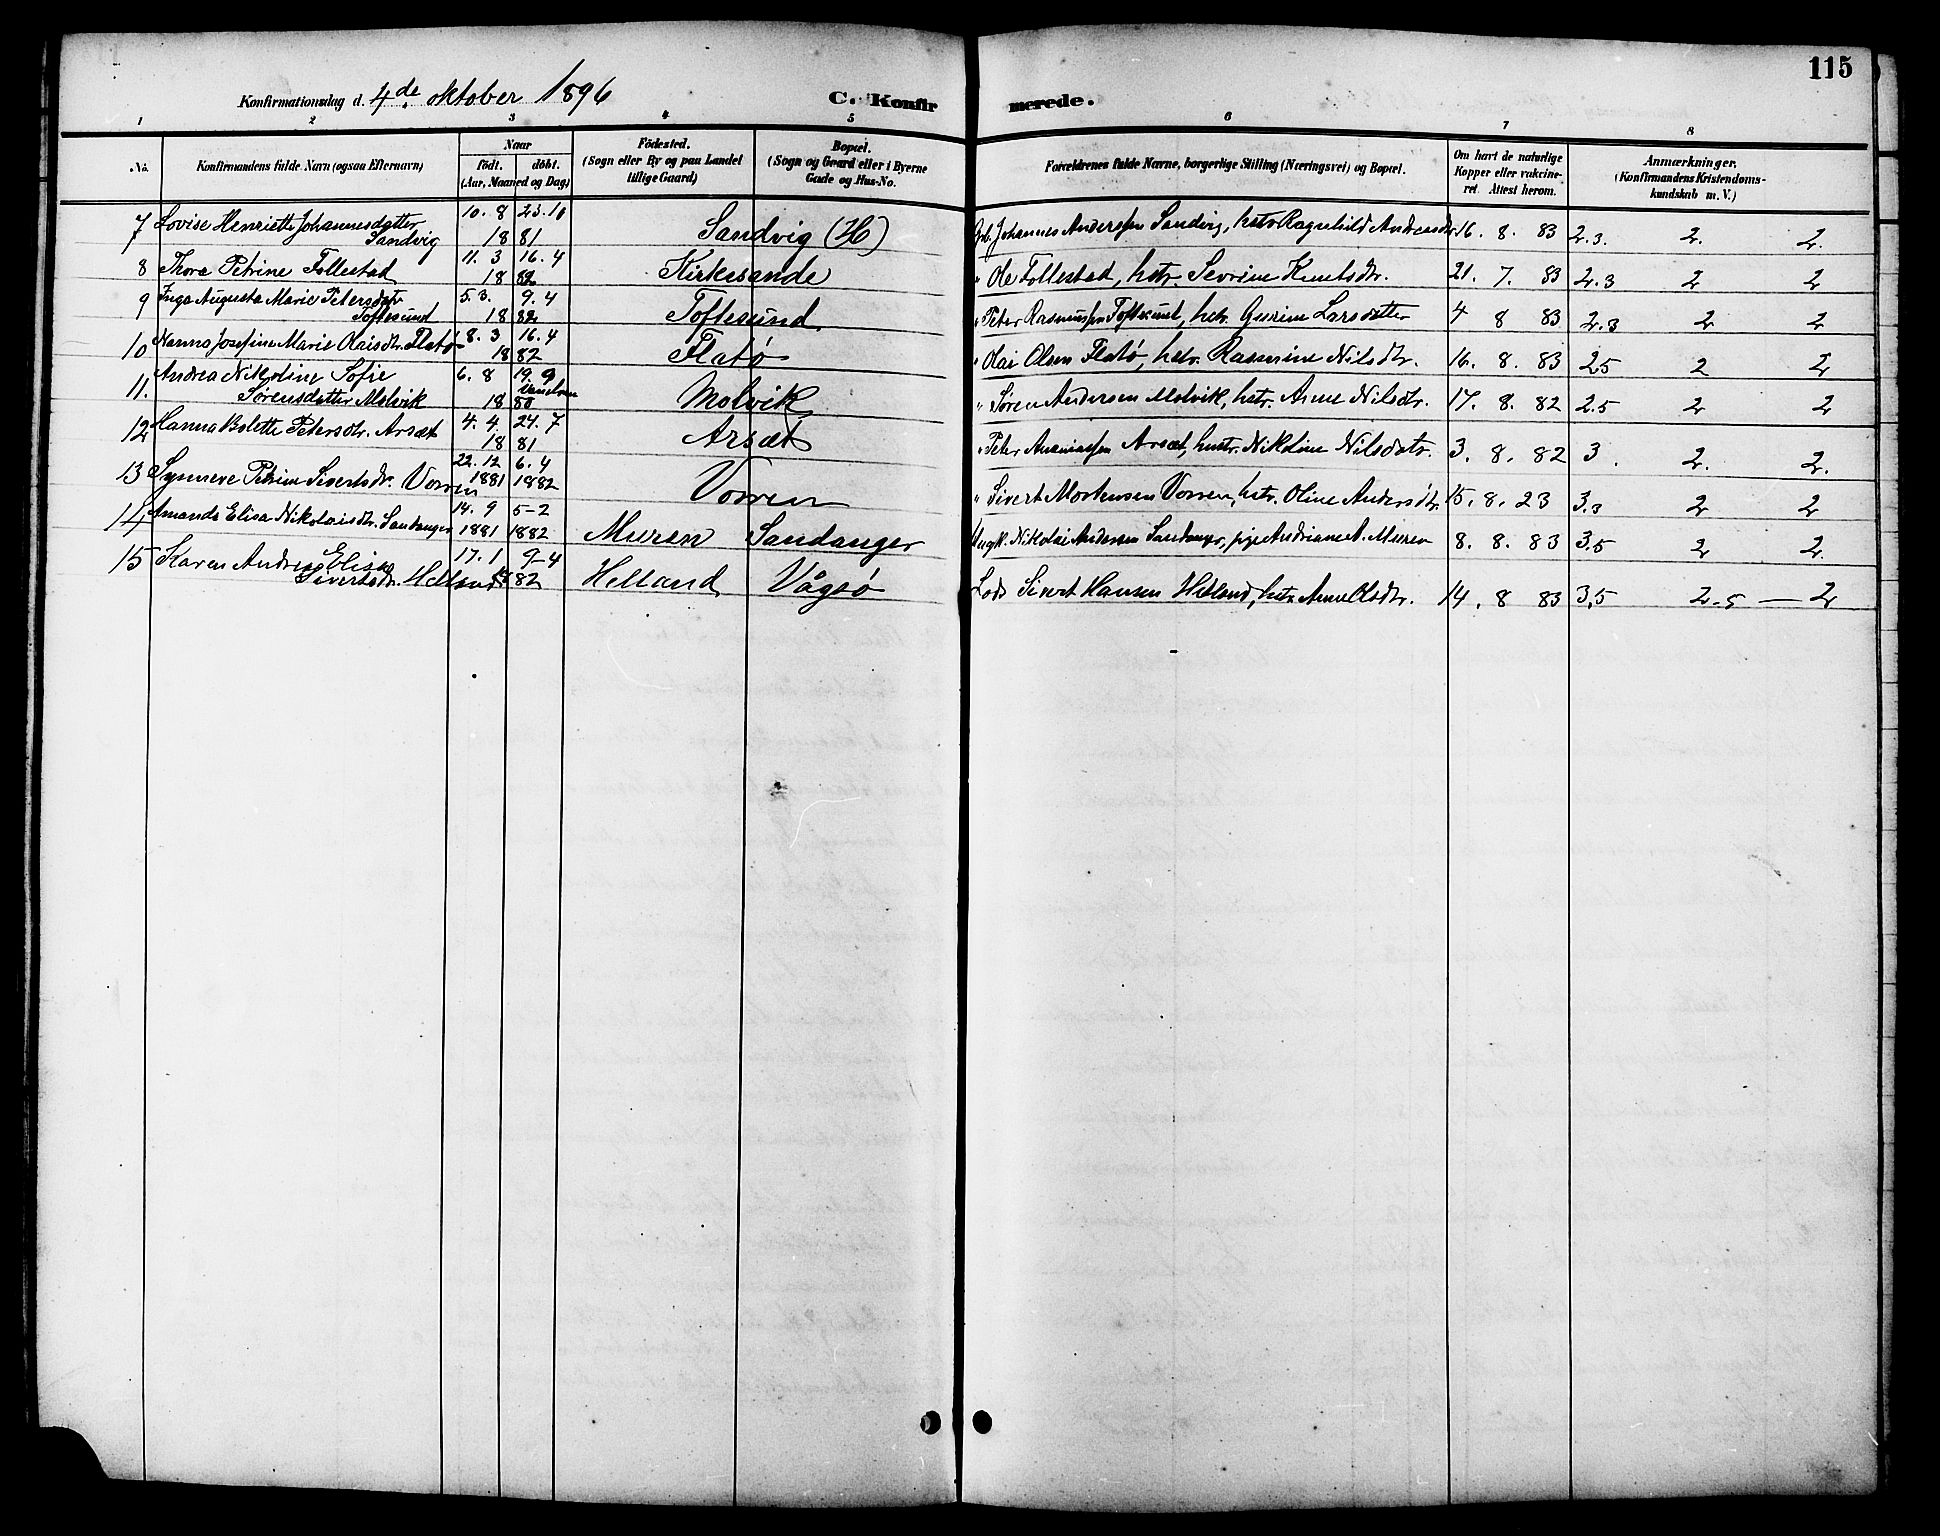 115
Konfirmationsdag d. 4de oktober 1896 C. Konfirmerede.
1 2 3 4 5 6 7 8
No. Konfirmandens fulde Navn (ogsaa Efternavn) Naar født. døbt. (Aar, Maaned og Dag) Fødested. (Sogn eller By og paa Landet tillige Gaard) Bopæl. (Sogn og Gaard eller i Byerne Gade og Hus-No. Forældrenes fulde Navne, borgerlige Stilling (Næringsvei) og Bopæl. Om havt de naturlige Kopper eller vakcineret. Attest herom. Anmærkninger. (Konfirmandens Kristendomskundskab m. V.)
7 Lovise Henriette Johannesdatter 10. 8 23.10 Sandvig (H) Gb. Johannes Anderssen Sandvig, hstr Ragnhild Andreasdtr. 16. 8. 83 2.3. 2. 2.
Sandvig 1881
8 Thora Petrine Follestad 11. 3 16. 4 Kirkesande " Ole Follestad, hstr. Sevrine Knutsdr. 21. 7. 83 2.3 2 2
1882
9 Inga Augusta Marie Petersdatr 5. 3. 9. 4 Toftesund " Peter Rasmussen Toftesund, hstr. Gurine Larsdatter 4 8 83 2.3 2 2
Toftesund 1882
10 Nanna Josefine Marie Olaisdtr. Flatø 8. 3 16. 4 Flatø " Olai Olsen Flatø, hstr. Rasmine Nilsdtr. 16. 8. 83 2.5 2 2
1882
11. Andrea Nikoline Sofie 6. 8 19. 9 Molvik " Søren Andersen Molvik, hstr. Anne Nilsdtr. 17. 8. 82 2.5 2 2
Sørensdatter Molvik 1880
12 Hanna Bolette Petersdtr. Arsæt 4. 4. 24. 7 Arsæt " Peter Ananiassen Arsæt, hustr. Nikoline Nilsdatr. 3. 8. 82 3. 2. 2.
1881
13 Synneve Petrine Sivertsdr. Vorren 22. 12 1881 6. 4 1882 Vorren " Sivert Mortensen Vorren, hstr. Oline Andersdtr. 15. 8. 23 3.3 2 2
14 Amanda Elisa Nikolaisdtr. Sandanger 14. 9 1881 5-2 1882 Muren Sandanger Ungk. Nikolai Andersen Sandanger, pige Andriane A. Muren 8. 8. 83 3.5 2 2.
15 Karen Andrea Elisa 17. 1 9-4 Helland Vågsø Lods Sivert Hansen Helland, hstr Anne Olsdtr. 14. 8 83 3.5 2.5 — 2
Sivertsdr. Helland 1882